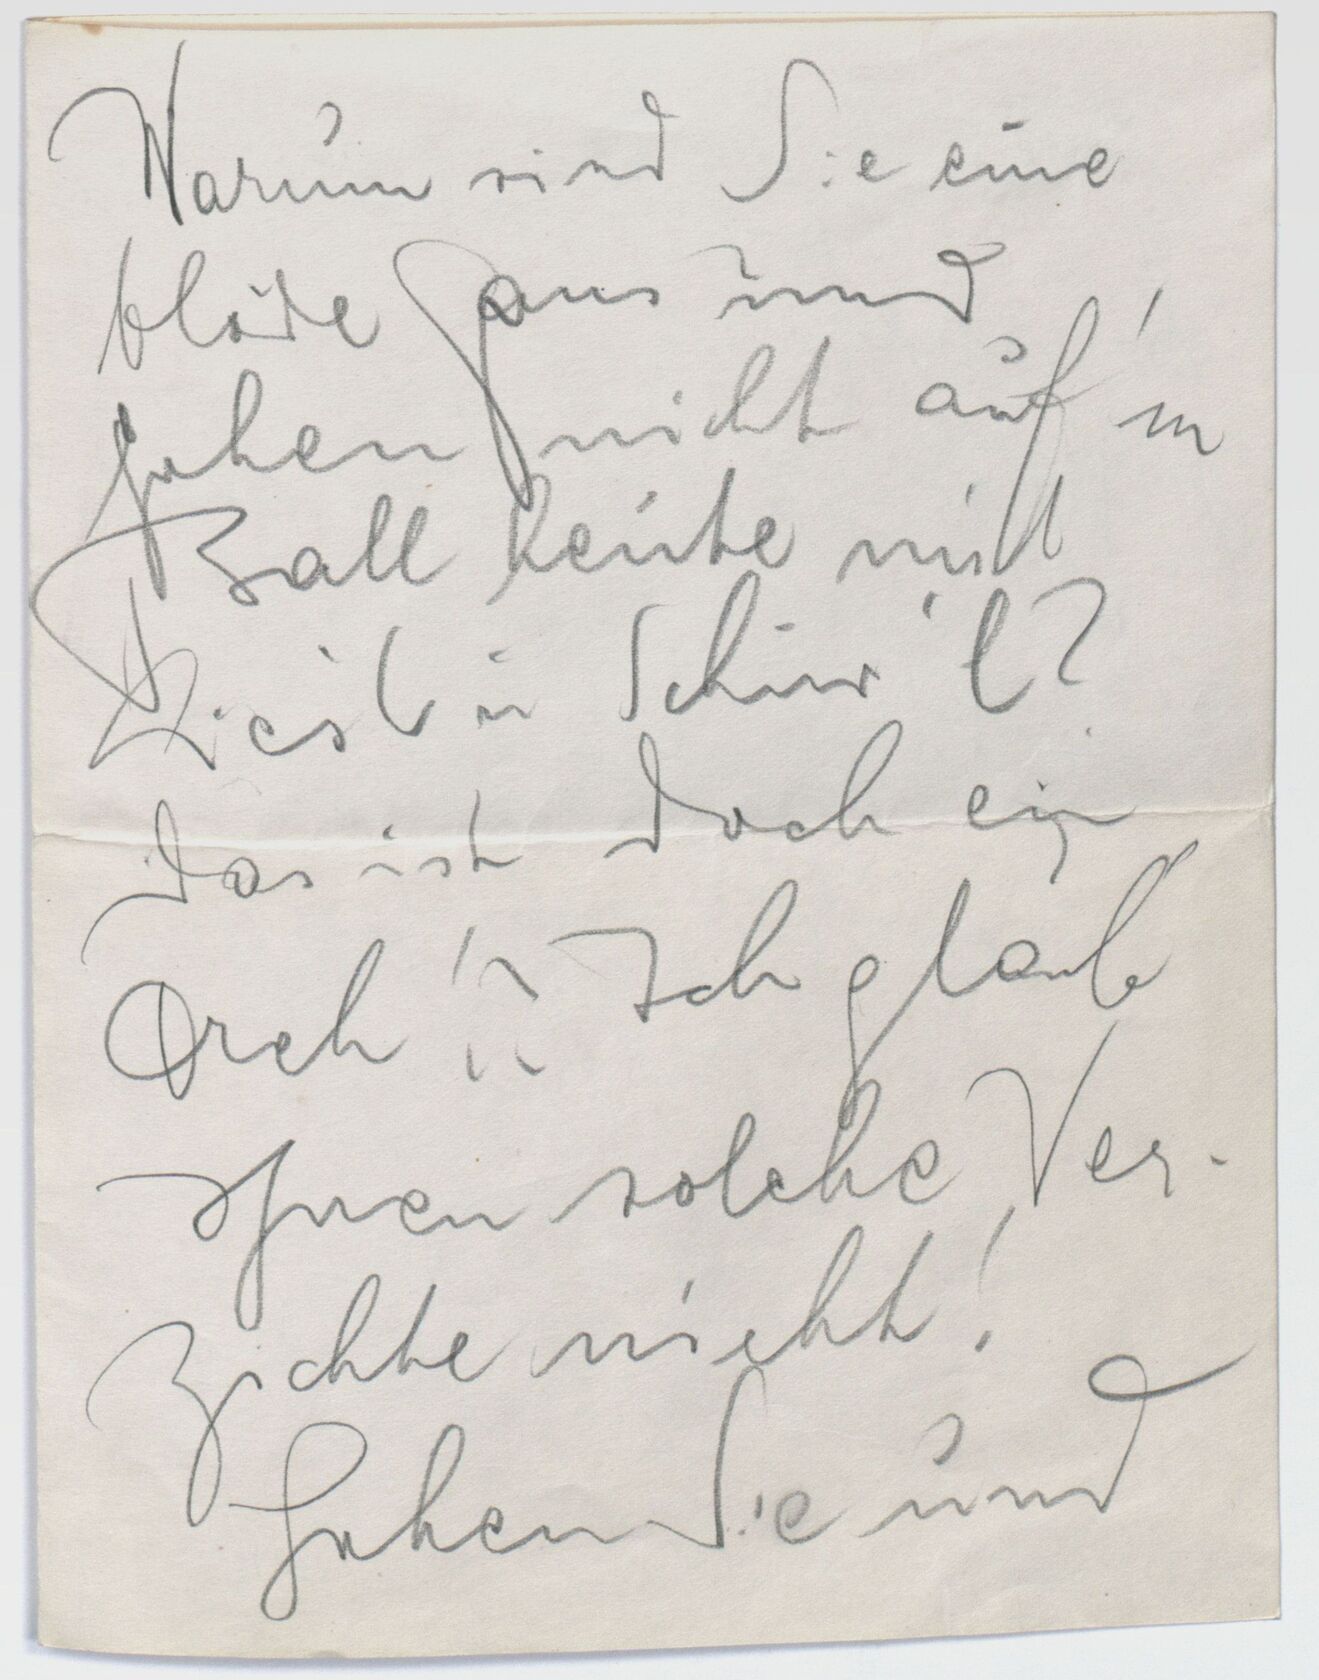 Warum sind Sie eine
blöde Gans und
gehen nicht auf'n
Ball heute mit
in
das ist doch ein
Dreh!! Ich glaub
Ihnen solche Ver-
zichte nicht!
Gehen Sie und